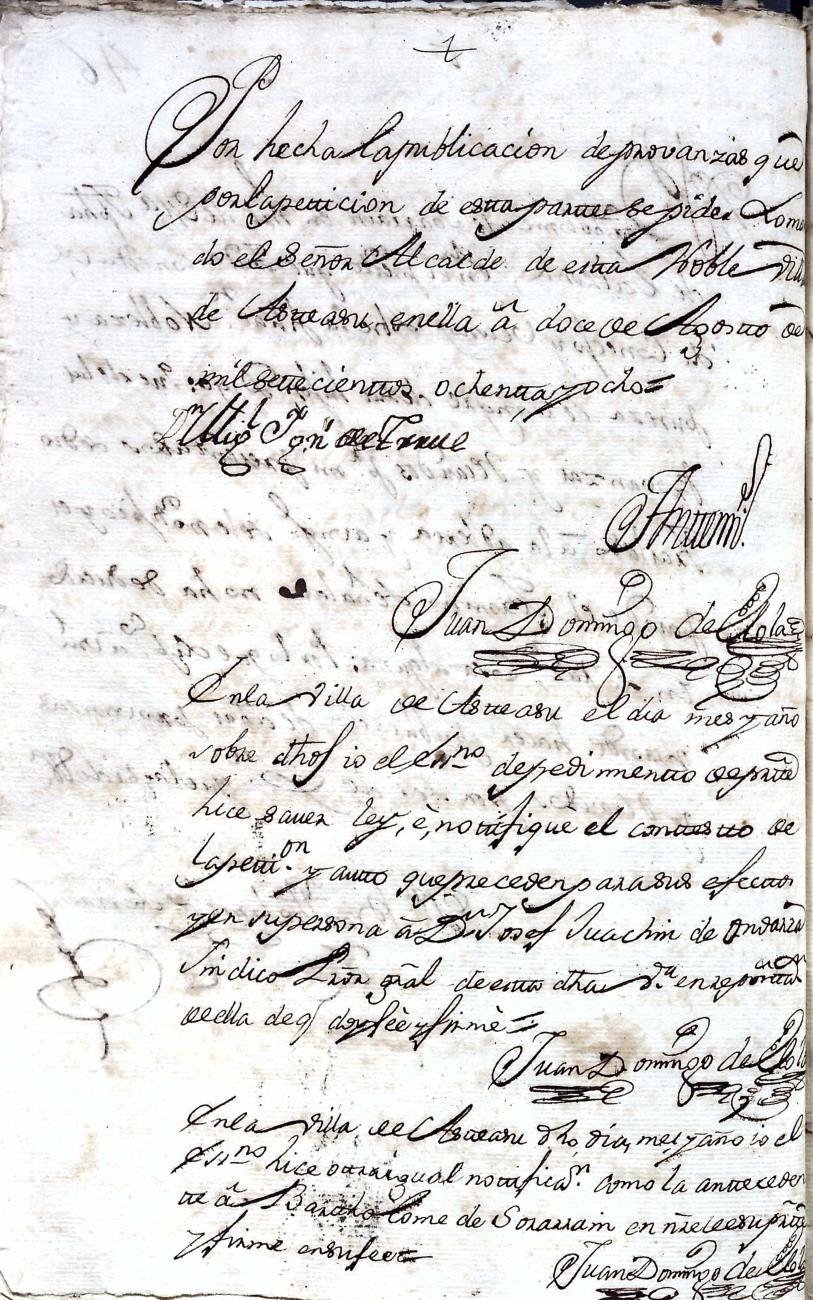 Por hecha la publicacion de provanzas que
por la petticion de estta partte se pide. Lo man
do el Señor Alcalde de estta Noble Villa
de Astteasu, en ella â doce de Agostto de
mil settecienttos ochentta, y ocho=
Dn Migl Ygno de
Antte mi
Juan Domingo de
En la Villa de Astteasu el dia mes y año
sobre dhos io el Essno de pedimientto de partte
hice saver ley, è, nottifique el conttestto de
la petti.on y autto que preceden para sus efecttos
y en su persona â Dn Josef Juachin de
Sindico Pror gral de estta dha Va en
de ella de q doy feè y firmè=
Juan Domingo de
En la Villa de Astteasu dho dia, mes y año io el
Essno hice ottra igual nottificaon como la antteceden
tte â Bartholome de Sorarrain en
y firme en su fee=
Juan Domingo de